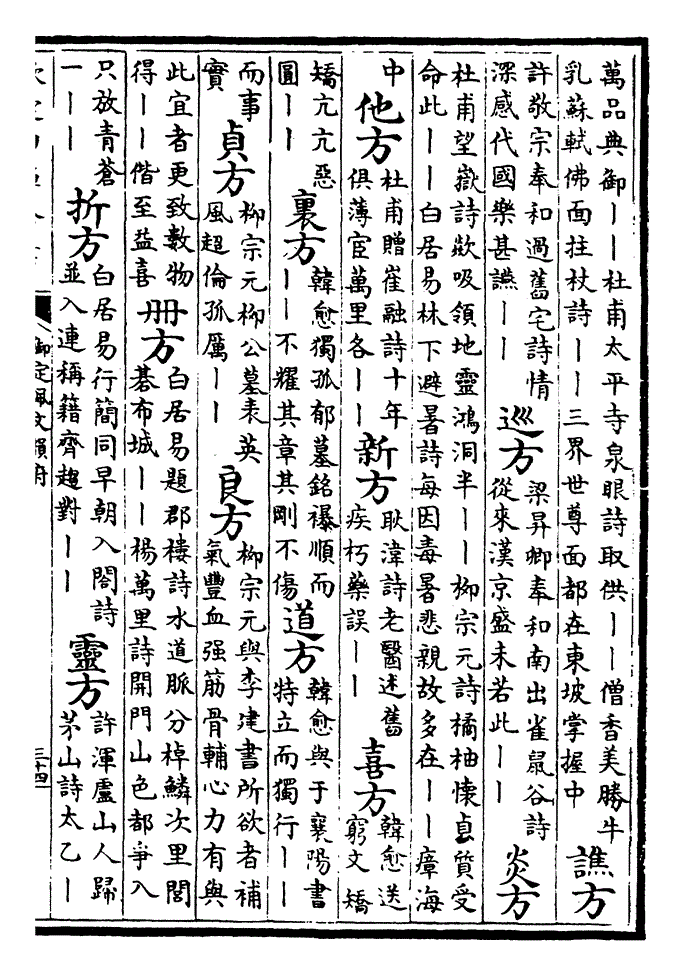 萬品典御丨丨杜甫太平寺泉眼詩取供丨丨僧香美勝牛
乳蘇軾佛面拄杖詩丨丨三界世尊面都在東坡掌握中
譙方
許敬宗奉和過舊宅詩情
深感代國樂甚譙丨丨
巡方
梁昇卿奉和南出雀鼠谷詩
從來漢京盛未若此丨丨
炎方
杜甫望嶽詩歘吸領地靈鴻洞半丨丨柳宗元詩橘柚懷貞質受
命此丨丨白居易林下避暑詩每因毒暑悲親故多在丨丨瘴海
中
他方
杜甫贈崔融詩十年
俱薄宦萬里各丨丨
新方
耿湋詩老醫迷舊
疾朽藥誤丨丨
喜方
韓愈送
窮文矯
矯亢亢惡
圓丨丨
裏方
韓愈獨孤郁墓銘襮順而
丨丨不耀其章其剛不傷
道方
韓愈與于襄陽書
特立而獨行丨丨
而事
實
貞方
柳宗元柳公墓表英
風超倫孤厲丨丨
良方
柳宗元與李建書所欲者補
氣豐血强筋骨輔心力有與
此宜者更致數物
得丨丨偕至益喜
冊方
白居易題郡樓詩水道脈分棹鱗次里閭
棊布城丨丨楊萬里詩開門山色都爭入
只放青蒼
一丨丨
折方
白居易行簡同早朝入閤詩
並入連稱籍齊趨對丨丨
靈方
許渾盧山人歸
茅山詩太乙丨
御定佩文韻府
三十四